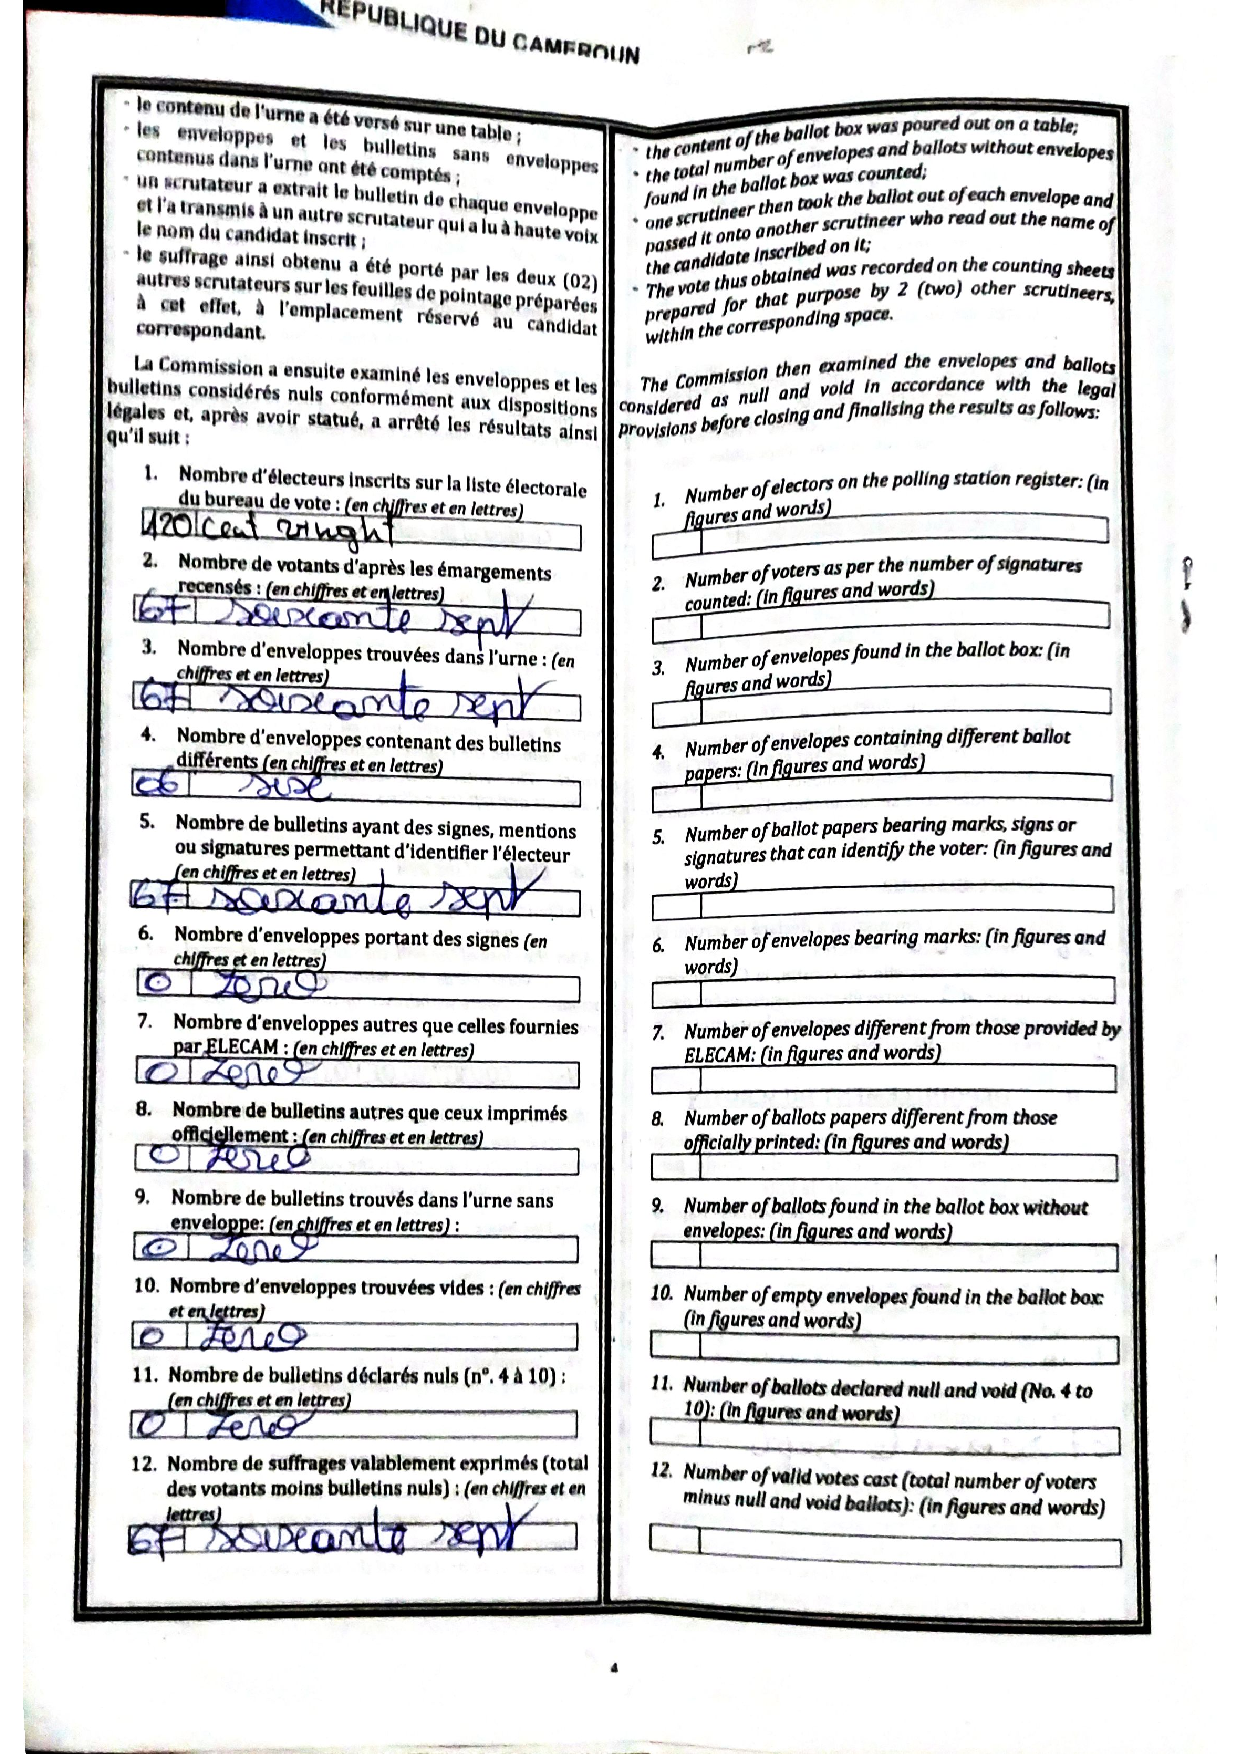 REPUBLIQUE DU CAMEROUN
- le contenu de l'urne a été versé sur une table ;
- les enveloppes et les bulletins sans enveloppes
contenus dans l'urne ont été comptés ;
- un scrutateur a extrait le bulletin de chaque enveloppe
et l'a transmis à un autre scrutateur qui a lu à haute voix
le nom du candidat inscrit ;
- le suffrage ainsi obtenu a été porté par les deux (02)
autres scrutateurs sur les feuilles de pointage préparées
à cet effet, à l'emplacement réservé au candidat
correspondant.
La Commission a ensuite examiné les enveloppes et les
bulletins considérés nuls conformément aux dispositions
légales et, après avoir statué, a arrêté les résultats ainsi
qu'il suit :
1. Nombre d'électeurs inscrits sur la liste électorale
du bureau de vote : (en chiffres et en lettres)
120 cent vinght
2. Nombre de votants d'après les émargements
recensés : (en chiffres et en lettres)
67 soixante sept
3. Nombre d'enveloppes trouvées dans l'urne : (en
chiffres et en lettres)
67 soixante sept
4. Nombre d'enveloppes contenant des bulletins
différents (en chiffres et en lettres)
06 sise
5. Nombre de bulletins ayant des signes, mentions
ou signatures permettant d'identifier l'électeur
(en chiffres et en lettres)
67 soixante sept
6. Nombre d'enveloppes portant des signes (en
chiffres et en lettres)
0 zero
7. Nombre d'enveloppes autres que celles fournies
par ELECAM : (en chiffres et en lettres)
0 zero
8. Nombre de bulletins autres que ceux imprimés
officiellement : (en chiffres et en lettres)
0 zero
9. Nombre de bulletins trouvés dans l'urne sans
enveloppe: (en chiffres et en lettres) :
0 zero
10. Nombre d'enveloppes trouvées vides : (en chiffres
et en lettres)
0 zero
11. Nombre de bulletins déclarés nuls (n°. 4 à 10) :
(en chiffres et en lettres)
0 zero
12. Nombre de suffrages valablement exprimés (total
des votants moins bulletins nuls) : (en chiffres et en
lettres)
67 soixante sept
- the content of the ballot box was poured out on a table;
- the total number of envelopes and ballots without envelopes
found in the ballot box was counted;
- one scrutineer then took the ballot out of each envelope and
passed it onto another scrutineer who read out the name of
the candidate inscribed on it;
- The vote thus obtained was recorded on the counting sheets
prepared for that purpose by 2 (two) other scrutineers,
within the corresponding space.
The Commission then examined the envelopes and ballots
considered as null and void in accordance with the legal
provisions before closing and finalising the results as follows:
1. Number of electors on the polling station register: (in
figures and words)
2. Number of voters as per the number of signatures
counted: (in figures and words)
3. Number of envelopes found in the ballot box: (in
figures and words)
4. Number of envelopes containing different ballot
papers: (in figures and words)
5. Number of ballot papers bearing marks, signs or
signatures that can identify the voter: (in figures and
words)
6. Number of envelopes bearing marks: (in figures and
words)
7. Number of envelopes different from those provided by
ELECAM: (in figures and words)
8. Number of ballots papers different from those
officially printed: (in figures and words)
9. Number of ballots found in the ballot box without
envelopes: (in figures and words)
10. Number of empty envelopes found in the ballot box:
(in figures and words)
11. Number of ballots declared null and void (No. 4 to
10): (in figures and words)
12. Number of valid votes cast (total number of voters
minus null and void ballots): (in figures and words)
4